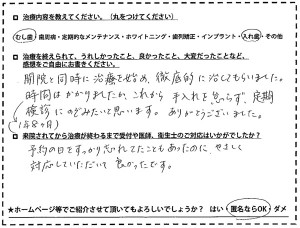 □ 治療内容を教えてください。(丸をつけてください)
むし歯・歯周病・定期的なメンテナンス・ホワイトニング・歯列矯正・インプラント・入れ歯・その他
□ 治療を終えられて、うれしかったこと、良かったこと、大変だったことなど、
感想をご自由にお書きください。
開院と同時に治療を始め、徹底的に治してもらいました。
時間はかかりましたが、これから手入れを怠らず、定期
検診にのぞみたいと思います。ありがとうございました。
(1年8ヶ月)
□ 来院されてから治療が終わるまで受付や医師、衛生士のご対応はいかがでしたか?
予約の日をすっかり忘れてたこともあったのに、やさしく
対応していただいて良かったです。
★ホームページ等でご紹介させて頂いてもよろしいでしょうか? はい・匿名ならOK・ダメ